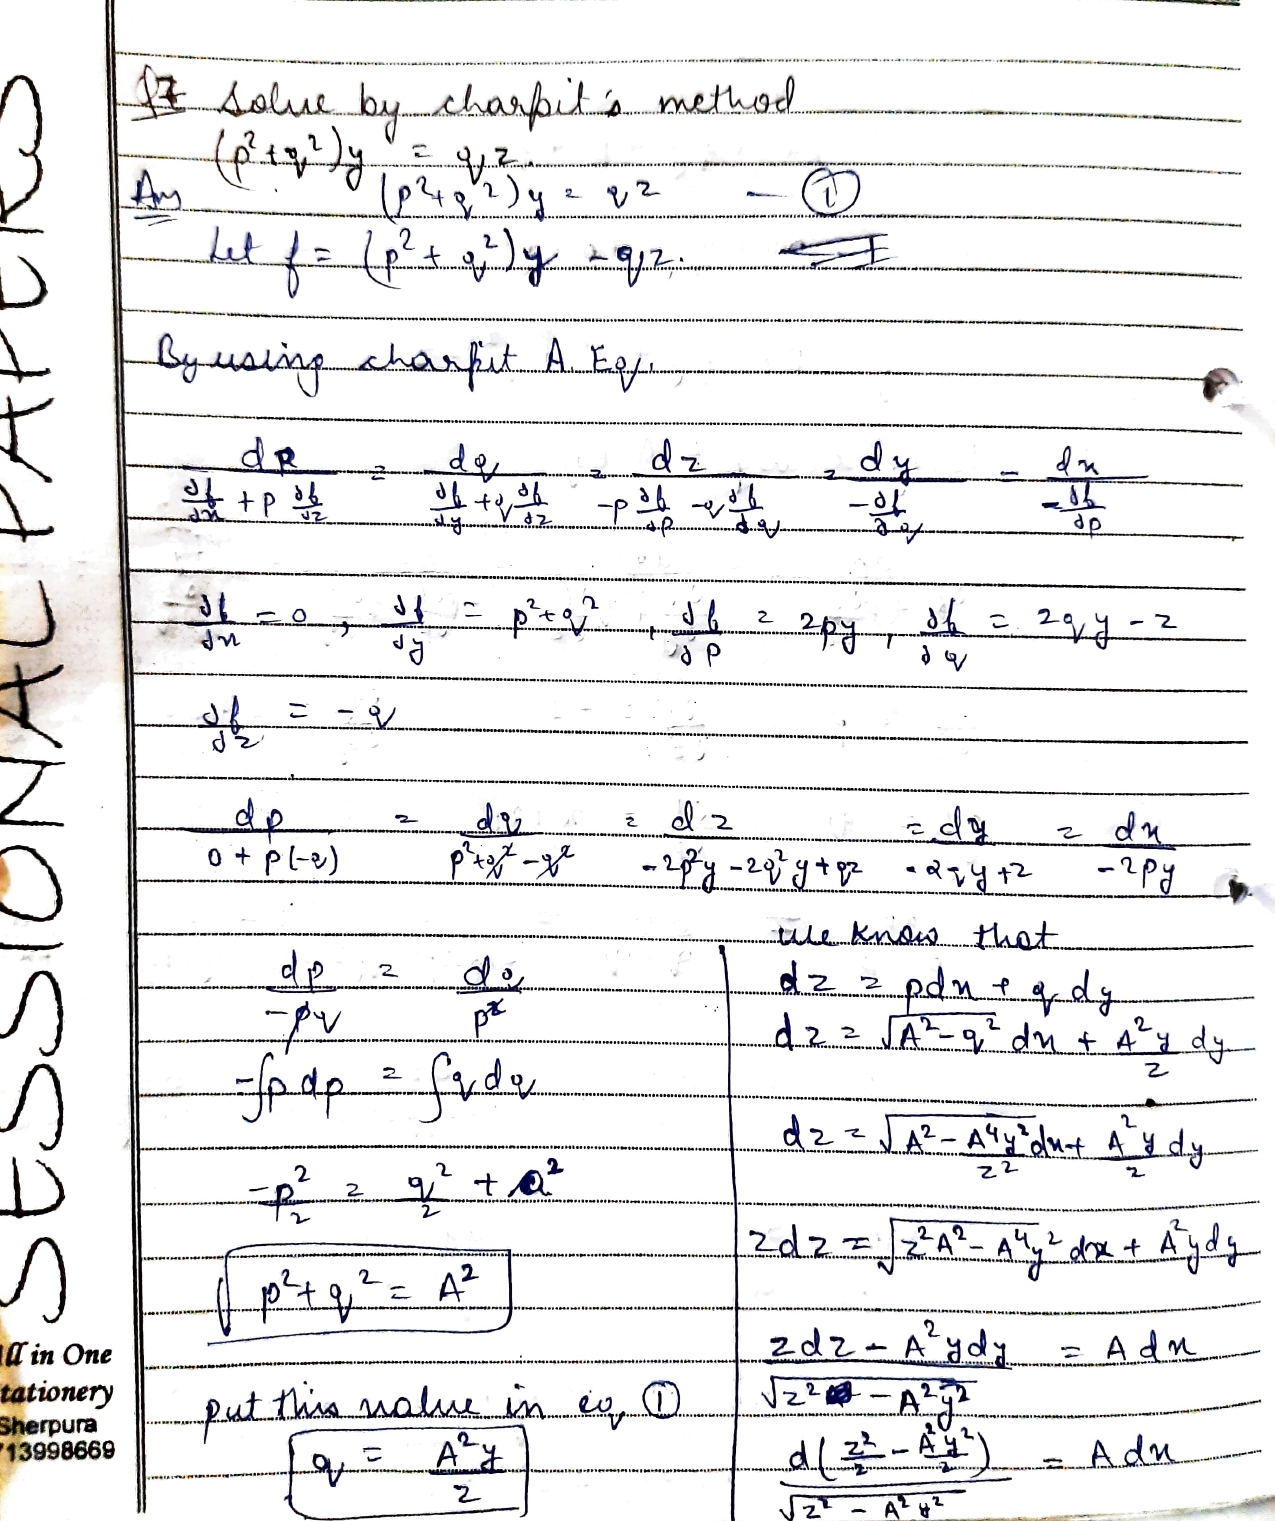 Solve by charpit's method
(p²+q²)y = qz.
Ans (p²+q²)y = qz — ①
Let f = (p²+q²)y - qz.
By using charpit A. Eq.
dp/(∂f/∂x + p ∂f/∂z) = dq/(∂f/∂y + q ∂f/∂z) = dz/(-p ∂f/∂p - q ∂f/∂q) = dy/(-∂f/∂q) = dx/(-∂f/∂p)
∂f/∂x = 0, ∂f/∂y = p²+q², ∂f/∂p = 2py, ∂f/∂q = 2qy - z
∂f/∂z = -q
dp/(0 + p(-q)) = dq/(p²+q²-q²) = dz/(-2p²y - 2q²y + qz) = dy/(-2qy + z) = dx/(-2py)
dp/(-pq) = dq/p²
-∫p dp = ∫q dq
-p²/2 = q²/2 + a²
p²+q² = A²
put this value in eq ①
q = A²y/z
we know that
dz = pdx + q dy
dz = √(A²-q²) dx + A²y/z dy
dz = √(A² - A⁴y²/z²) dx + A²y/z dy
zdz = √(z²A² - A⁴y²) dx + A²ydy
(zdz - A²ydy)/√(z² - A²y²) = A dx
d(z²/2 - A²y²/2)/√(z² - A²y²) = A dx
SESSIONAL PAPERS
All in One
tationery
Sherpura
713998669